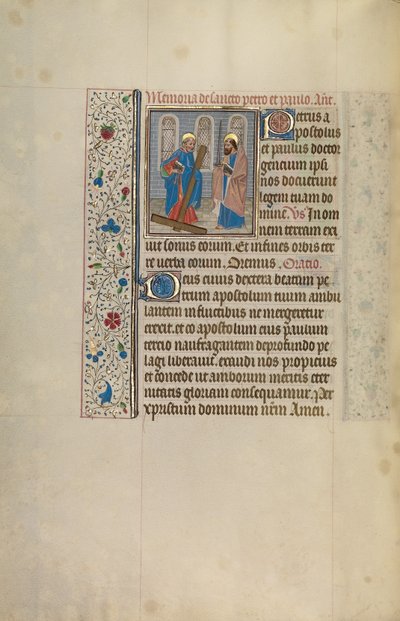 Memoria de sancto petro et paulo. Añt.
Petrus a
postolus
et paulus doctor
gencium ipsi
nos docuerunt
legem tuam do
mine. Vs In om
nem terram exi
uit sonus eorum. Et in fines orbis ter
re verba eorum. Oremus. Oratio.
Deus cuius dextera beatum pe
trum apostolum tuum ambu
lantem in fluctibus ne mergeretur
erexit. et co apostolum eius paulum
tercio naufragantem de profundo pe
lagi liberauit. exaudi nos propicius
et concede ut amborum meritis eter
nitatis gloriam consequamur. Per
xpristum dominum nr̃m Amen.